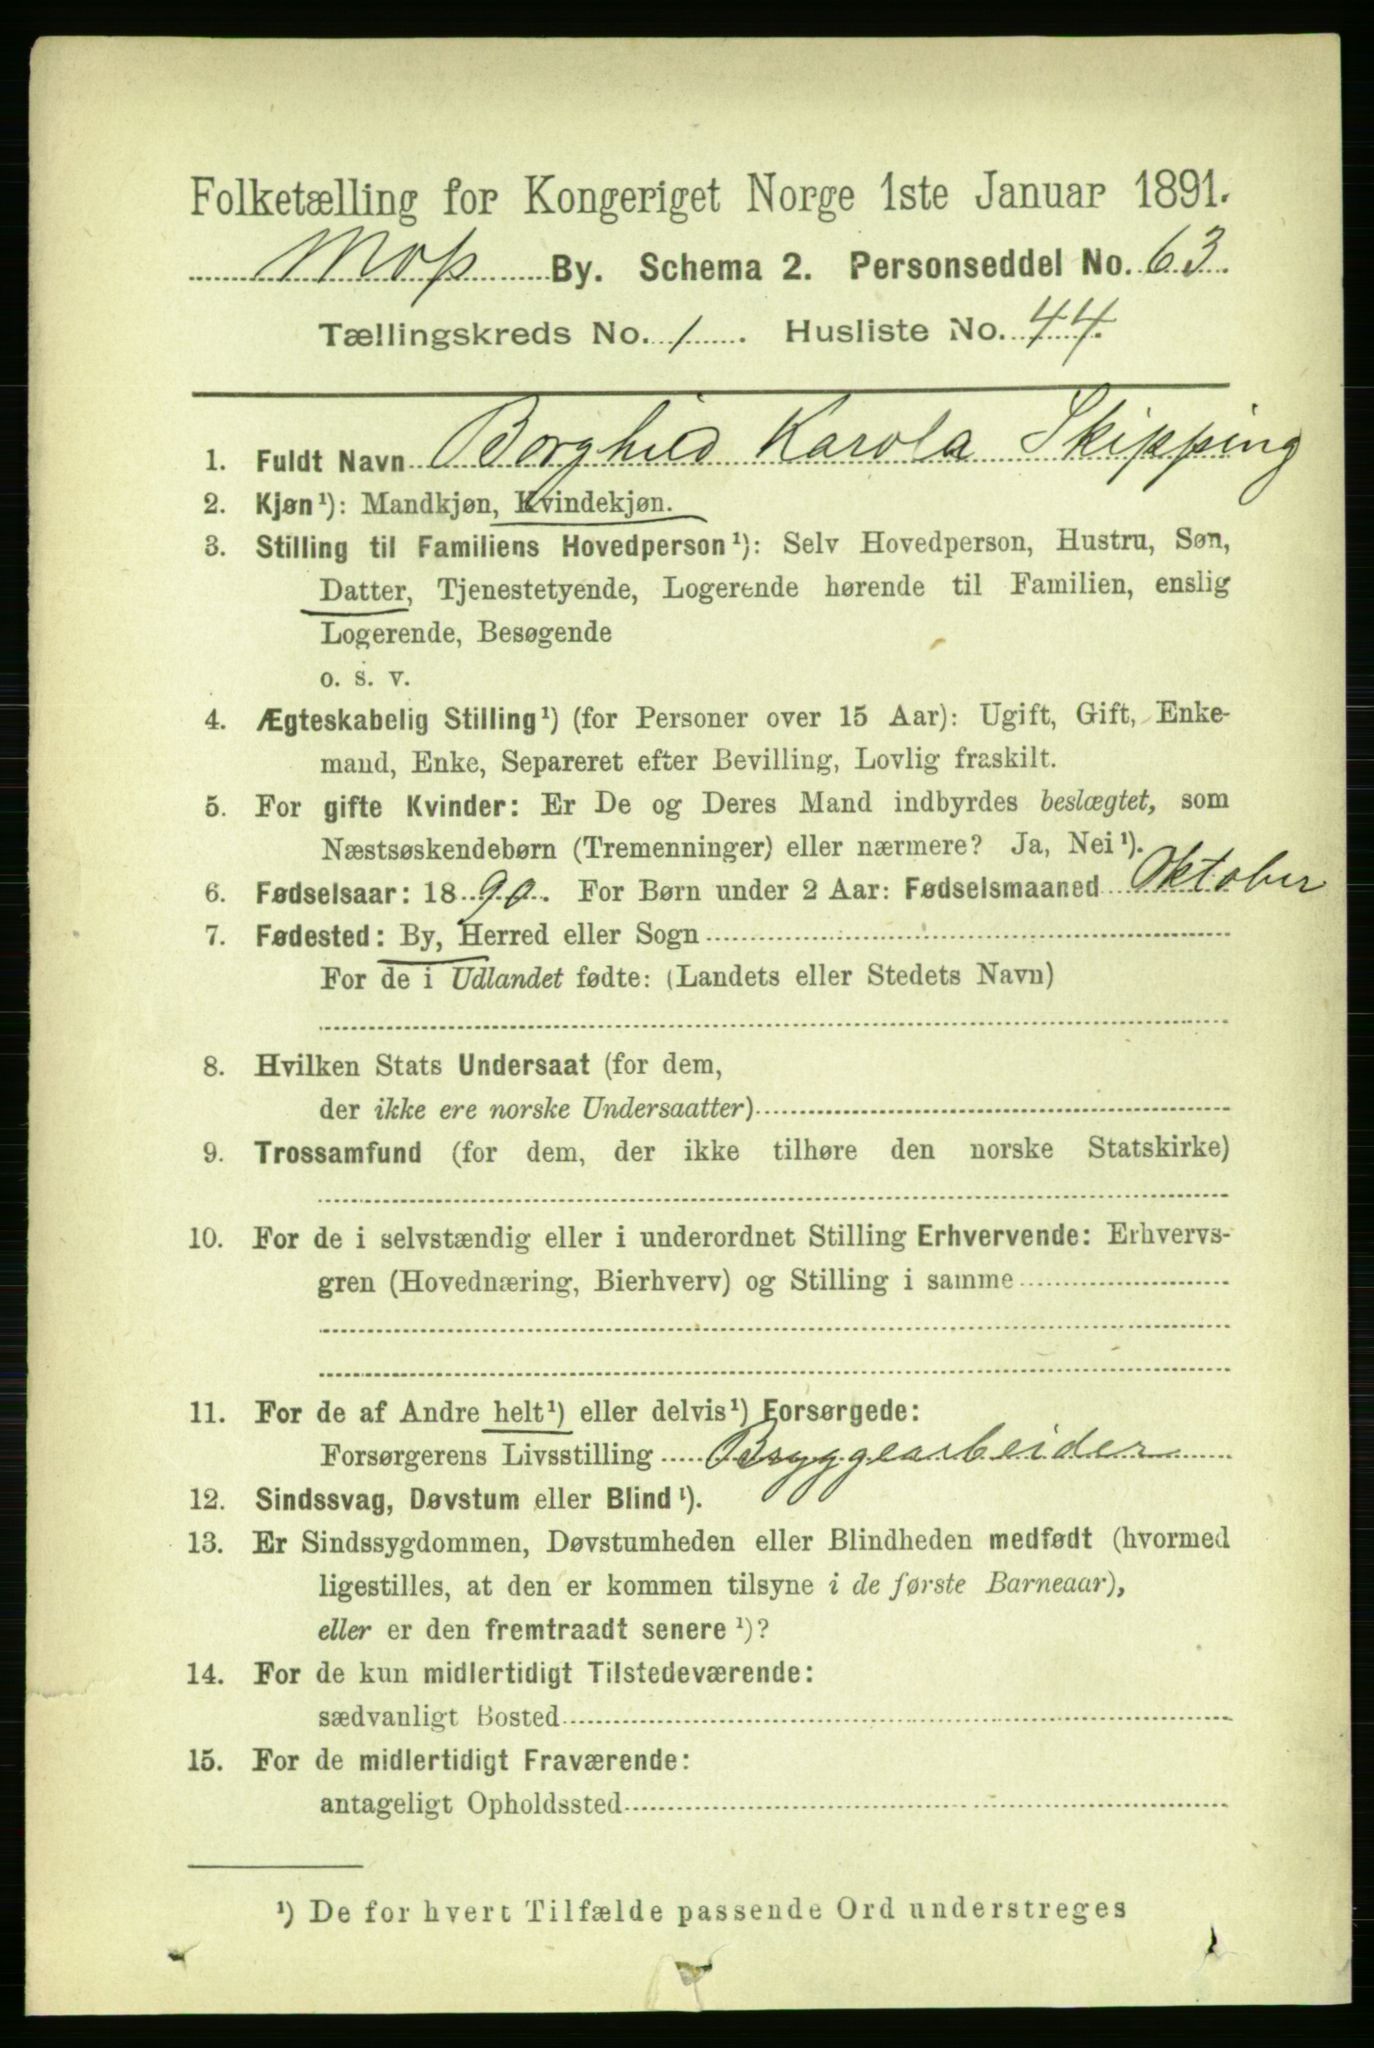 Folketælling for Kongeriget Norge 1ste Januar 1891.
Moss By. Schema 2. Personseddel No. 63.
Tællingskreds No. 1. Husliste No. 44.
1. Fuldt Navn Borghild Karola Skipping
2. Kjøn¹): Mandkjøn, Kvindekjøn.
3. Stilling til Familiens Hovedperson¹): Selv Hovedperson, Hustru, Søn,
Datter, Tjenestetyende, Logerende hørende til Familien, enslig
Logerende, Besøgende
o. s. v.
4. Ægteskabelig Stilling¹) (for Personer over 15 Aar): Ugift, Gift, Enke-
mand, Enke, Separeret efter Bevilling, Lovlig fraskilt.
5. For gifte Kvinder: Er De og Deres Mand indbyrdes beslægtet, som
Næstsøskendebørn (Tremenninger) eller nærmere? Ja, Nei¹).
6. Fødselsaar: 1890. For Børn under 2 Aar: Fødselsmaaned Oktober
7. Fødested: By, Herred eller Sogn
For de i Udlandet fødte: (Landets eller Stedets Navn)
8. Hvilken Stats Undersaat (for dem,
der ikke ere norske Undersaatter)
9. Trossamfund (for dem, der ikke tilhøre den norske Statskirke)
10. For de i selvstændig eller i underordnet Stilling Erhvervende: Erhvervs-
gren (Hovednæring, Bierhverv) og Stilling i samme
11. For de af Andre helt¹) eller delvis¹) Forsørgede:
Forsørgerens Livsstilling Bryggearbeider
12. Sindssvag, Døvstum eller Blind¹).
13. Er Sindssygdommen, Døvstumheden eller Blindheden medfødt (hvormed
ligestilles, at den er kommen tilsyne i de første Barneaar),
eller er den fremtraadt senere¹)?
14. For de kun midlertidigt Tilstedeværende:
sædvanligt Bosted
15. For de midlertidigt Fraværende:
antageligt Opholdssted
¹) De for hvert Tilfælde passende Ord understreges